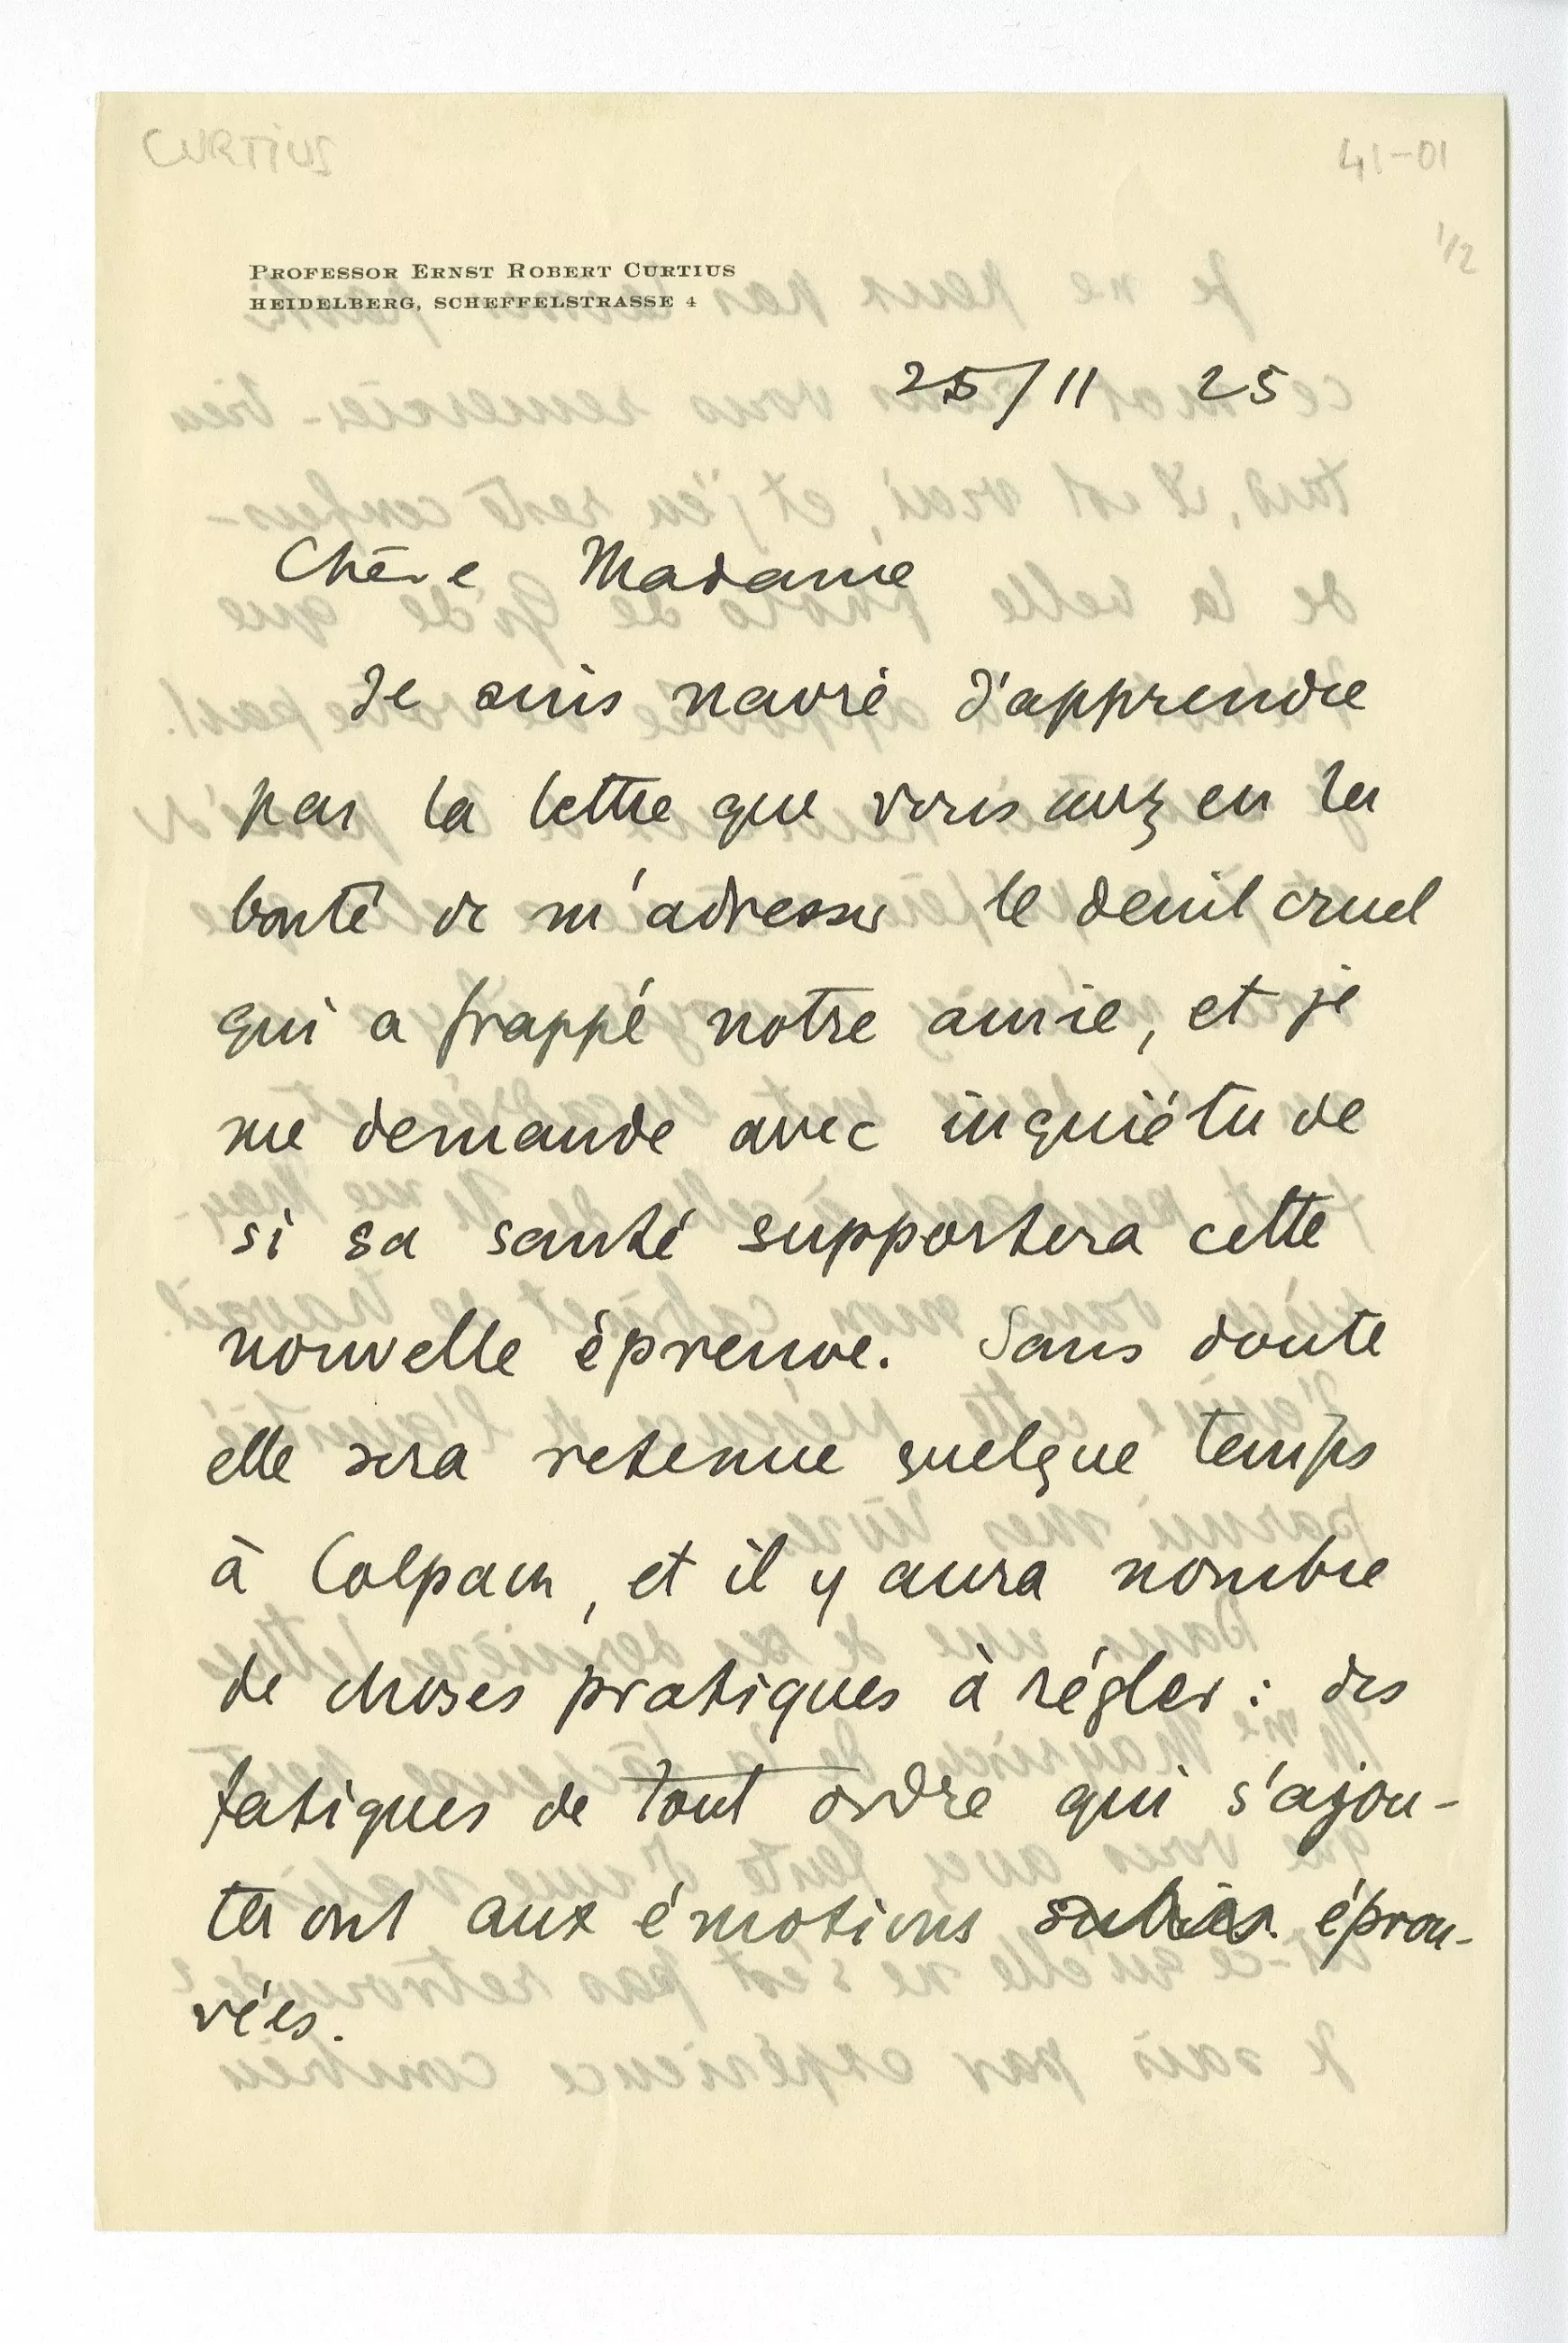 CURTIUS
41-01
1/2
PROFESSOR ERNST ROBERT CURTIUS
HEIDELBERG, SCHEFFELSTRASSE 4
25/11 25
Chère Madame
Je suis navré d'apprendre
par la lettre que vous avez eu la
bonté de m'adresser le deuil cruel
qui a frappé notre amie, et je
me demande avec inquiétude
si sa santé supportera cette
nouvelle épreuve. Sans doute
elle sera retenue quelque temps
à Colpach, et il y aura nombre
de choses pratiques à régler : des
fatigues de tout ordre qui s'ajou-
teront aux émotions subies. éprou-
vées.